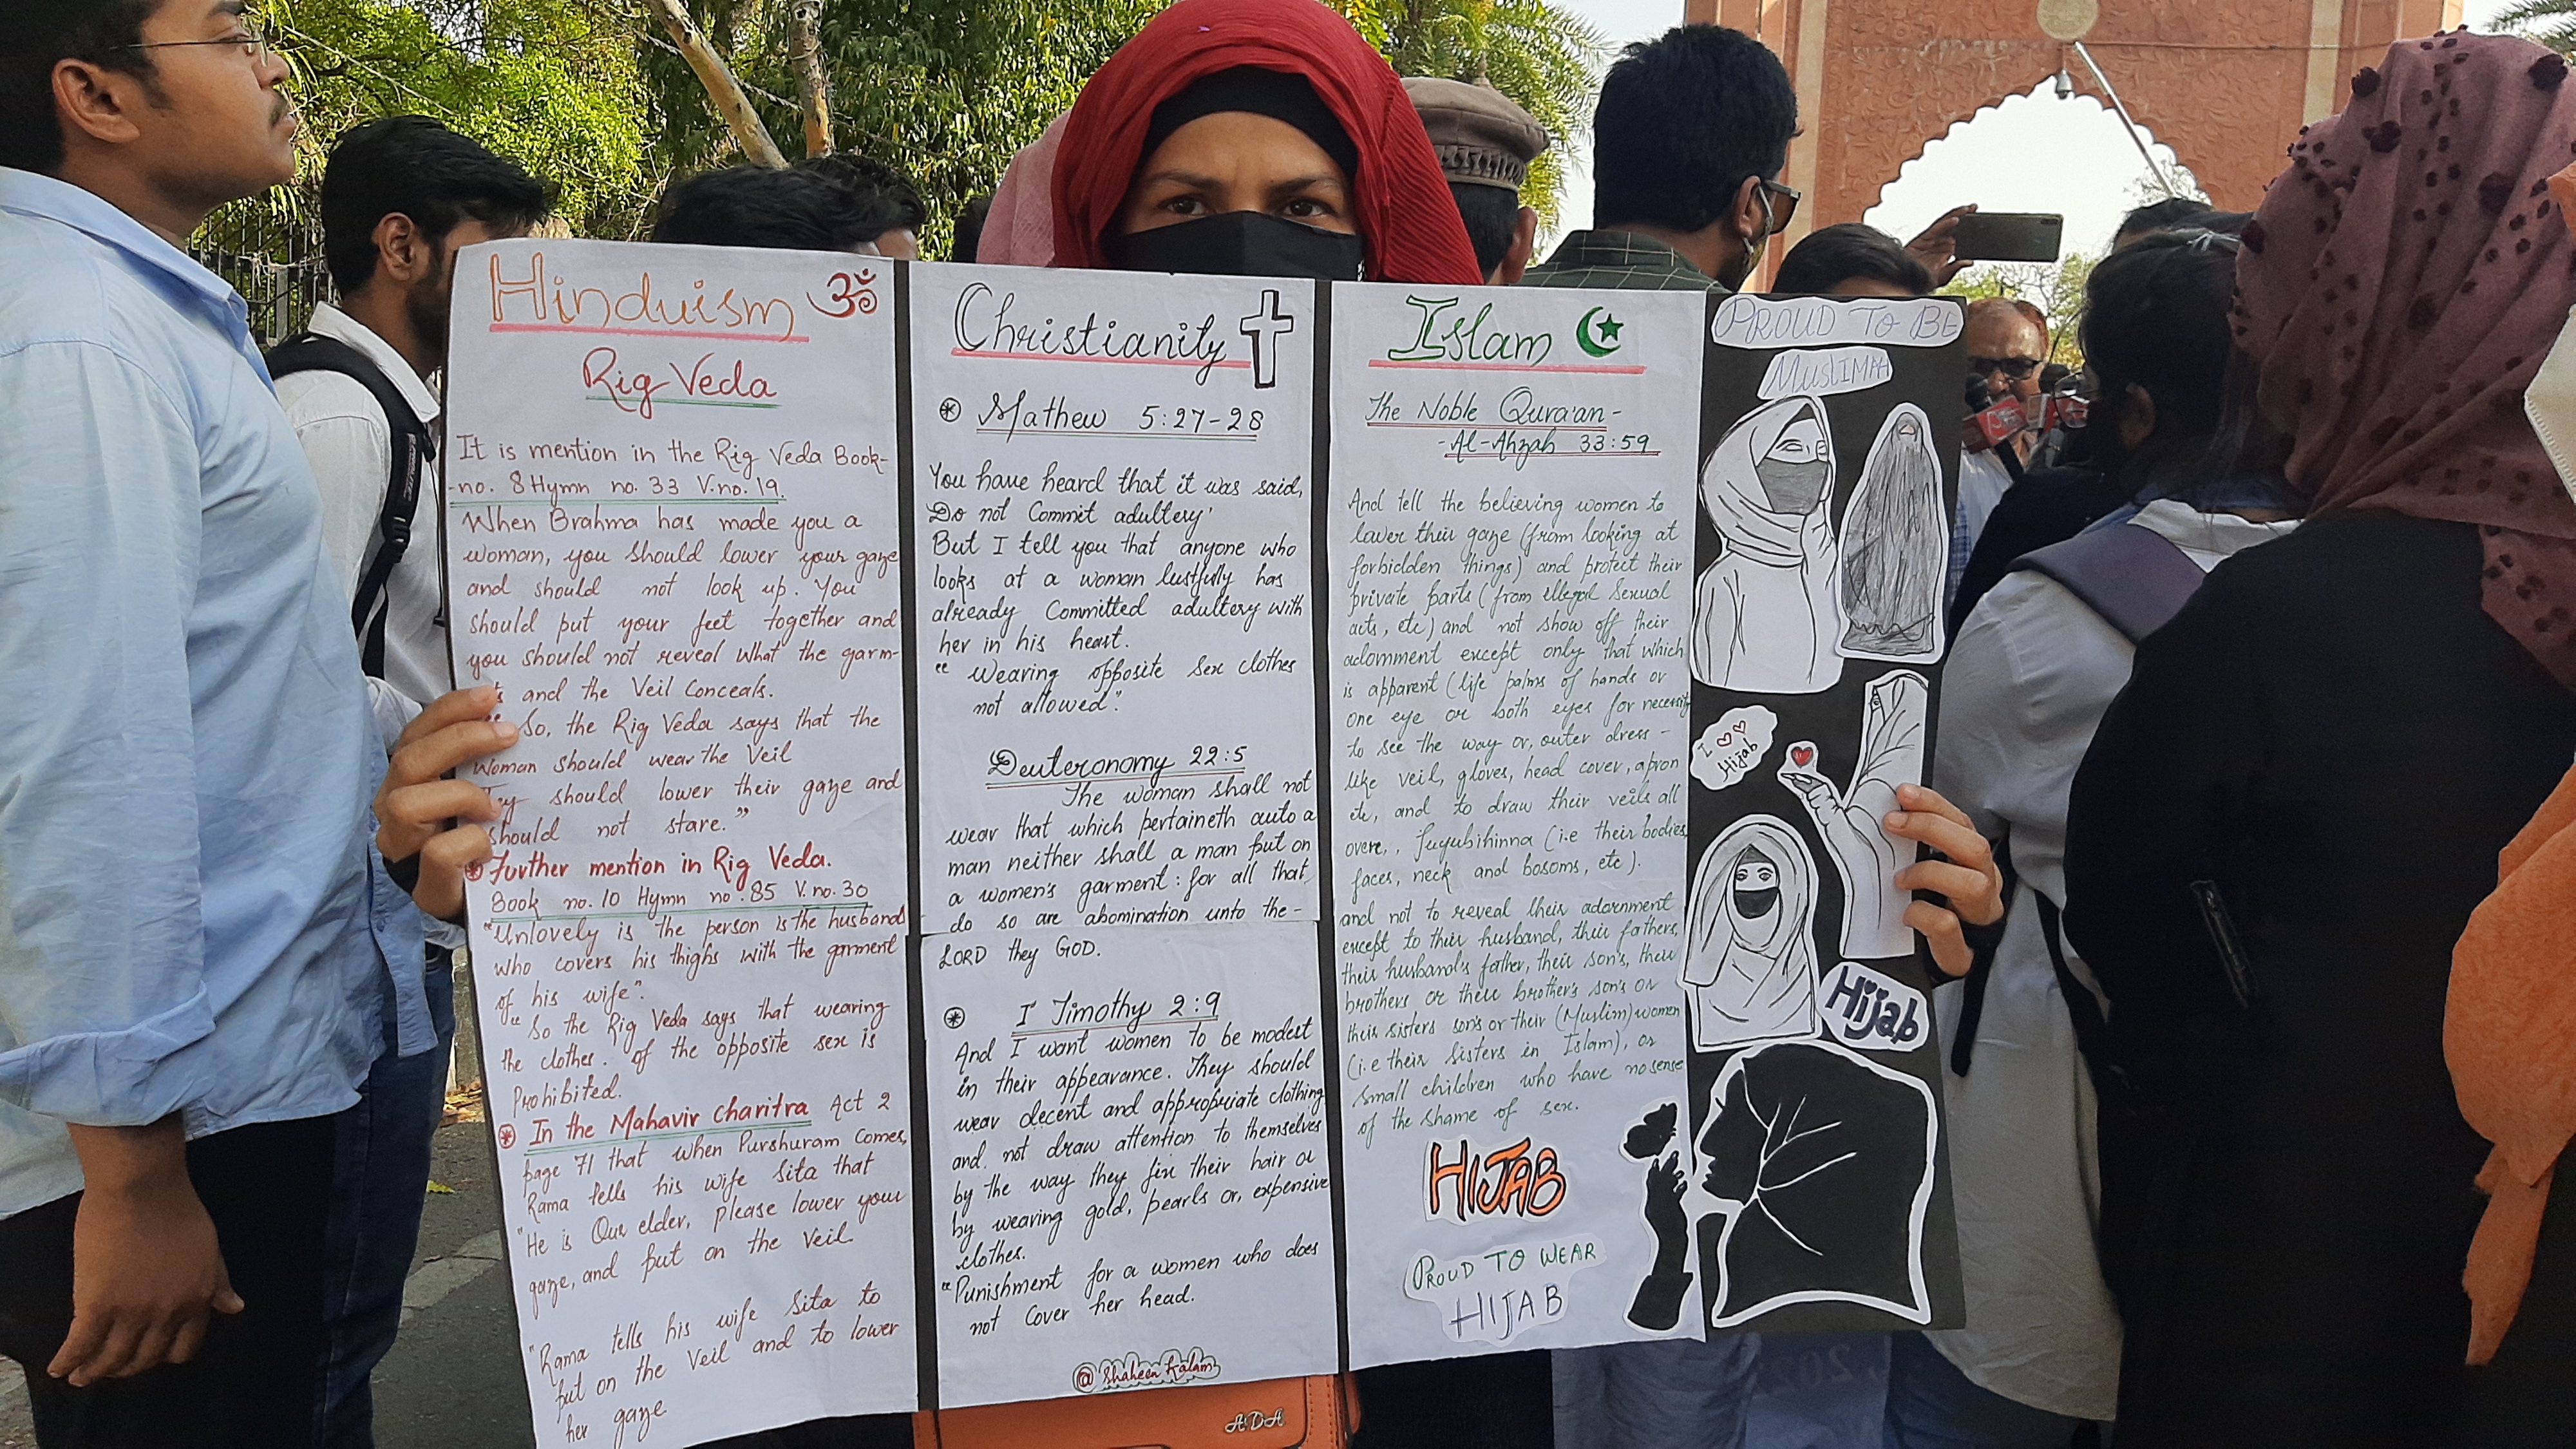 Hinduism ॐ
Rig Veda
It is mention in the Rig Veda Book-
-no. 8 Hymn no. 33 V.no. 19.
When Brahma has made you a
woman, you should lower your gaze
and should not look up. You
should put your feet together and
you should not reveal what the garm-
and the Veil Conceals.
So, the Rig Veda says that the
Woman should wear the Veil
should lower their gaze and
should not stare."
Further mention in Rig Veda.
Book no. 10 Hymn no. 85 V. no. 30
"Unlovely is the person is the husband
who covers his thighs with the garment
of his wife".
"So the Rig Veda says that wearing
the clothes. of the opposite sex is
Prohibited.
In the Mahavir Charitra Act 2
page 71 that when Purshuram Comes,
Rama tells his wife Sita that
"He is Our elder, please lower your
gaze, and put on the Veil.
"Rama tells his wife Sita to
put on the Veil and to lower
her gaze
Christianity
Mathew 5:27-28
You have heard that it was said,
Do not Commit adultery'
But I tell you that anyone who
looks at a woman lustfully has
already Committed adultery with
her in his heart.
"Wearing opposite sex clothes
not allowed."
Deuteronomy 22:5
The woman shall not
wear that which pertaineth auto a
man neither shall a man put on
a women's garment: for all that
do so are abomination unto the-
LORD they GOD.
I Timothy 2:9
And I want women to be modest
in their appearance. They should
wear decent and appropriate clothing
and not draw attention to themselves
by the way they fix their hair or
by wearing gold, pearls or, expensive
clothes.
"Punishment for a women who does
not Cover her head.
@Shaheen Kalam
ADA
Islam
The Noble Qura'an-
-Al-Ahzab 33:59
And tell the believing women to
lower their gaze (from looking at
forbidden things) and protect their
private parts (from illegal Sexual
acts, etc) and not show off their
adornment except only that which
is apparent (life palms of hands or
one eye or both eyes for necessity
to see the way or, outer dress-
like veil, gloves, head cover, apron
etc, and to draw their veils all
over, Juyubihinna (i.e their bodies,
faces, neck and bosoms, etc).
and not to reveal their adornment
except to their husband, their fathers,
their husband's father, their son's, their
brothers or their brother's son's or
their sisters son's or their (Muslim) women
(i.e their Sisters in Islam), or
small children who have no sense
of the shame of sex.
HIJAB
PROUD TO WEAR
HIJAB
PROUD TO BE
MUSLIMAH
I
Hijab
Hijab